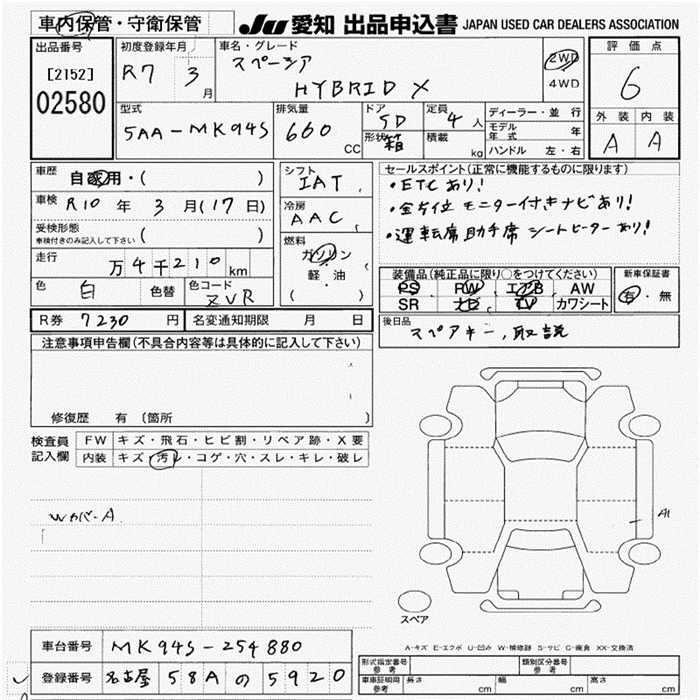 車内保管・守衛保管
JU 愛知 出品申込書 JAPAN USED CAR DEALERS ASSOCIATION
出品番号
[2152]
02580
初度登録年月
R7 3月
車名・グレード
スペーシア
HYBRID X
2WD
4WD
評価点
6
外装 内装
A A
型式
5AA-MK94S
排気量
660 CC
ドア
5D
形状
箱
定員
4人
積載 kg
ディーラー・並行
モデル年式 年
ハンドル 左・右
車歴
自家用・( )
車検 R10年 3月(17日)
受検形態
車検付きのみ記入して下さい ( )
走行
万4千210km
色 白 色替 色コード ZVR
シフト
IAT
冷房
AAC
燃料
ガソリン
軽・油
( )
セールスポイント(正常に機能するものに限ります)
・ETCあり!
・全方位モニター付きナビあり!
・運転席助手席シートヒーターあり!
装備品(純正品に限り○をつけてください)
PS PW エアB AW
SR ナビ TV カワシート
新車保証書
有・無
R券 7230円 名変通知期限 月 日
後日品
スペアキー, 取説
注意事項申告欄(不具合内容等は具体的に記入して下さい)
修復歴 有〔箇所
検査員記入欄
FW キズ・飛石・ヒビ割・リペア跡・X要
内装 キズ・汚レ・コゲ・穴・スレ・キレ・破レ
Wカバー A
A1
スペア
A-キズ E-エクボ U-凹み W-補修跡 S-サビ C-腐食 XX-交換済
車台番号 MK94S-254880
登録番号 名古屋 58A の 5920
形式指定番号 参考
類別区分番号 参考
車庫証明用 参考 長さ cm 幅 cm 高さ cm